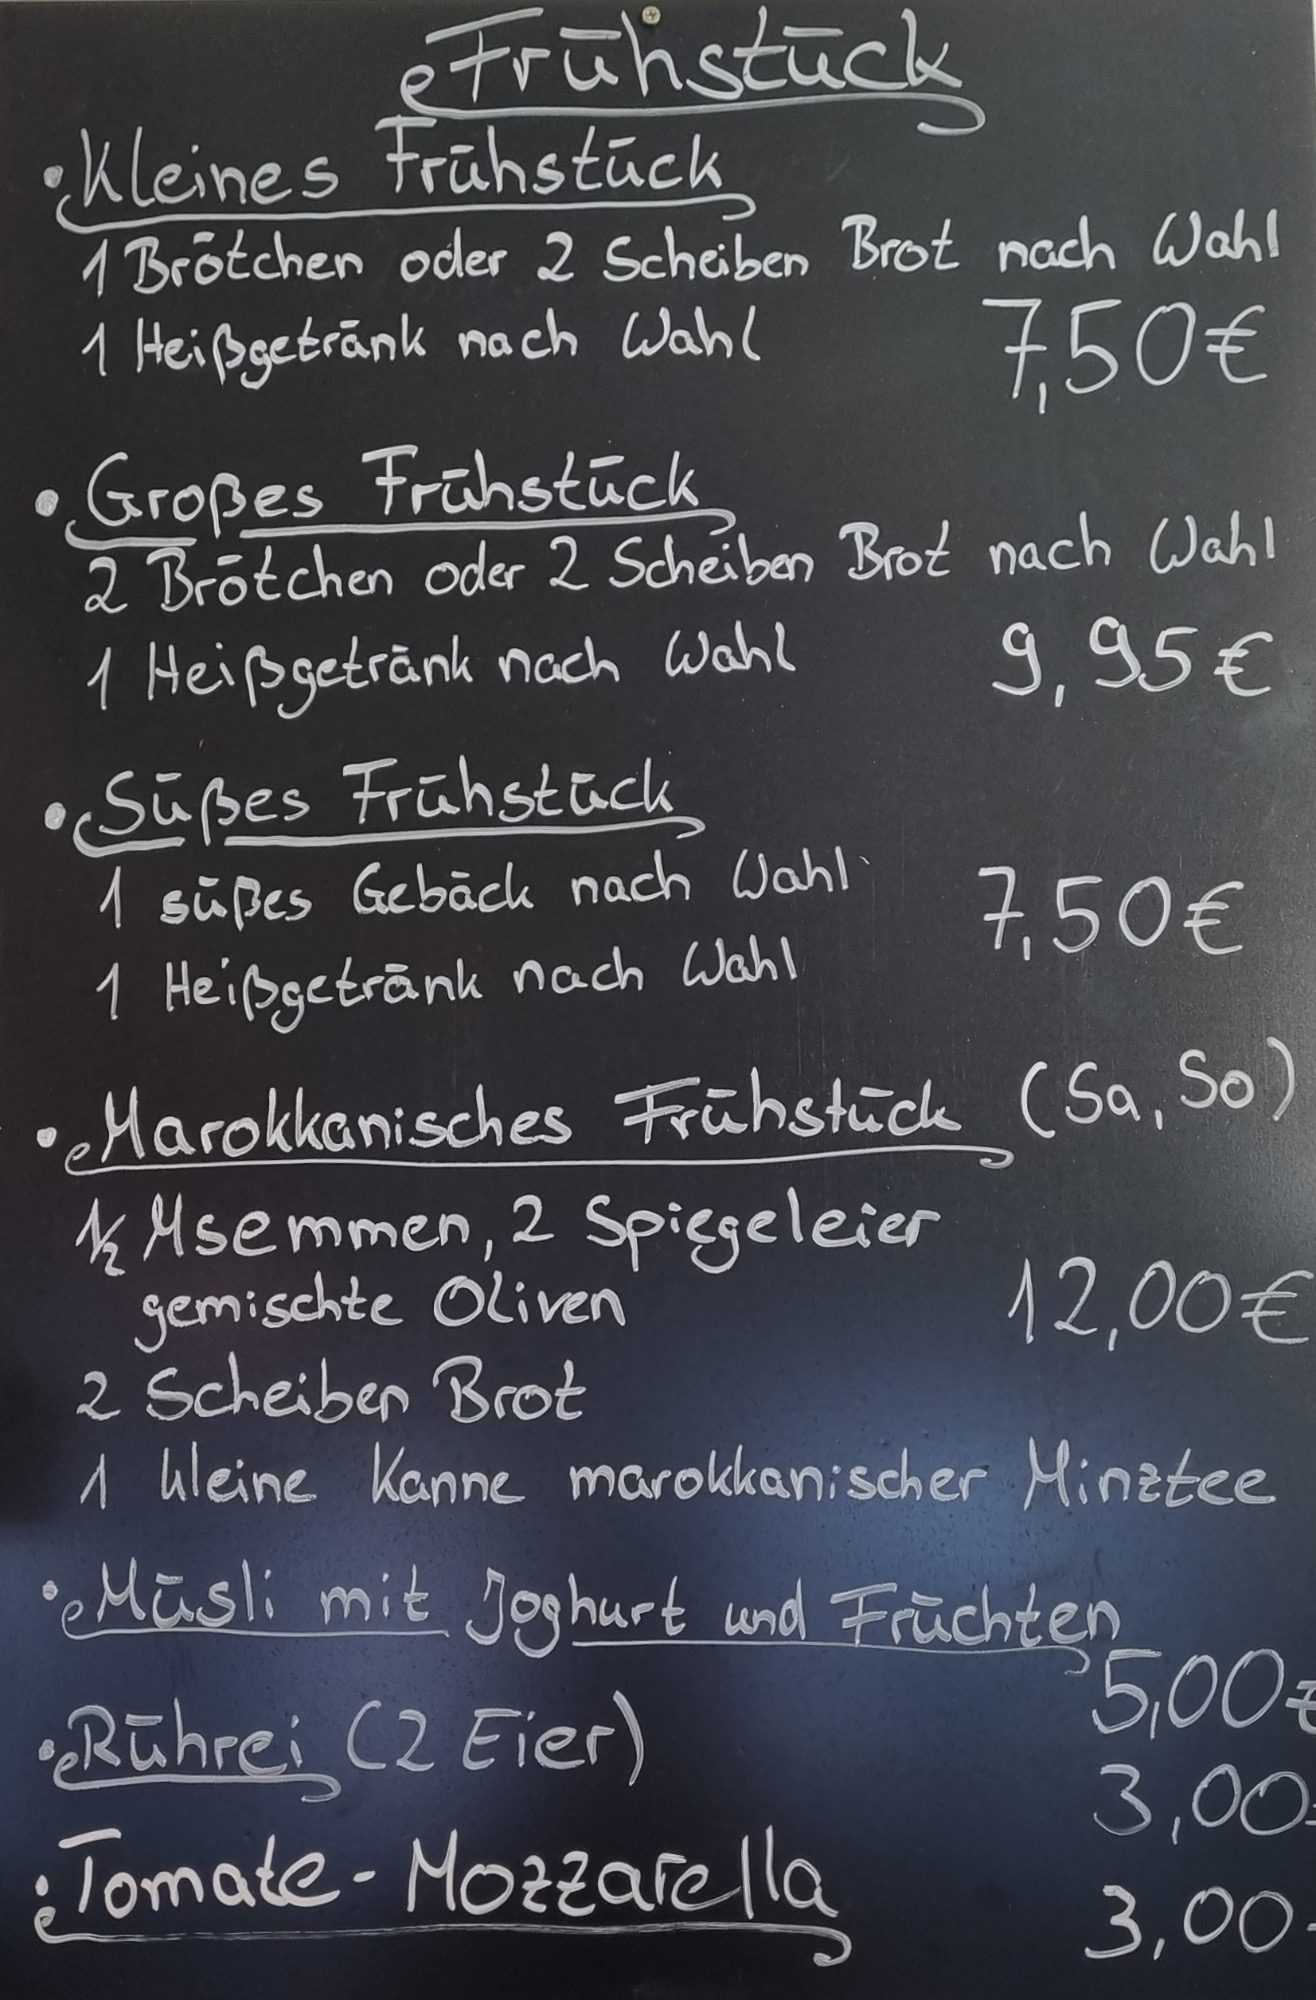 Frühstück
• Kleines Frühstück
1 Brötchen oder 2 Scheiben Brot nach Wahl
1 Heißgetränk nach Wahl 7,50€
• Großes Frühstück
2 Brötchen oder 2 Scheiben Brot nach Wahl
1 Heißgetränk nach Wahl 9,95€
• Süßes Frühstück
1 süßes Gebäck nach Wahl 7,50€
1 Heißgetränk nach Wahl
• Marokkanisches Frühstück (Sa, So)
½ Msemmen, 2 Spiegeleier
gemischte Oliven 12,00€
2 Scheiben Brot
1 kleine Kanne marokkanischer Minztee
• Müsli mit Joghurt und Früchten
5,00€
• Rührei (2 Eier) 3,00
• Tomate-Mozzarella 3,00